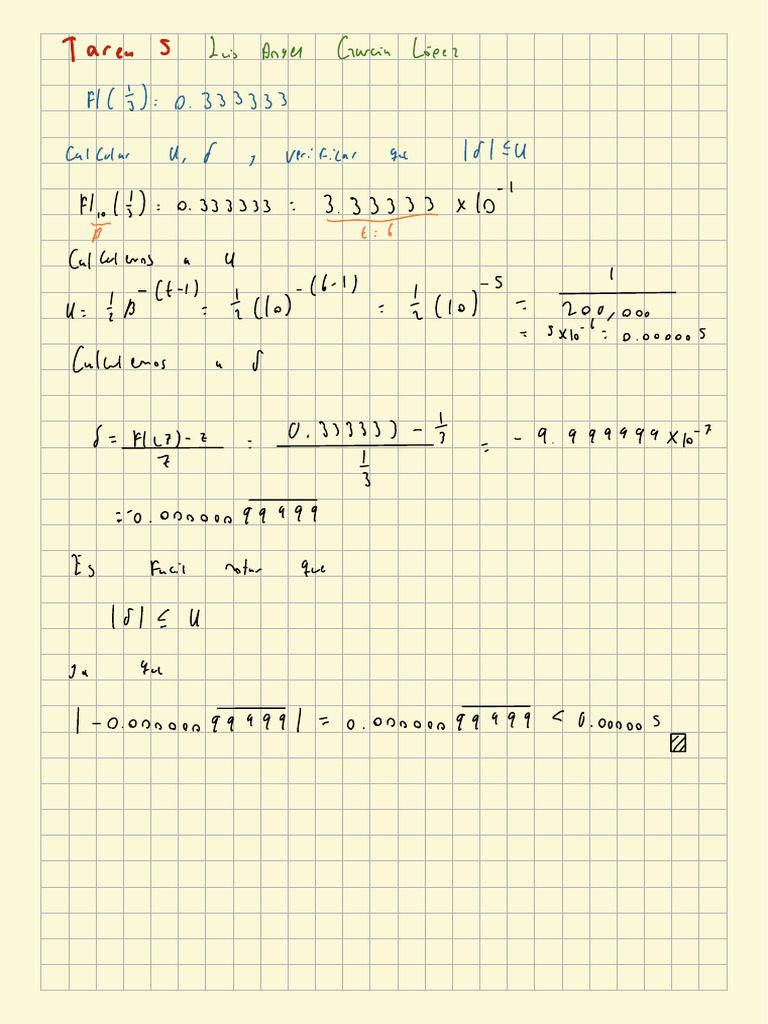 Tarea 5 Luis Angel García López
Fl(1/3): 0.333333
Calcular u, δ, verificar que |δ| ≤ u
Fl₁₀(1/3): 0.333333 = 3.33333 × 10^-1
β t: 6
Calculemos a u
u = 1/2 β^-(t-1) = 1/2 (10)^-(6-1) = 1/2 (10)^-5 = 1/200,000
= 5×10^-6 = 0.000005
Calculemos a δ
δ = (Fl(z) - z)/z = (0.333333 - 1/3)/(1/3) = -9.999999 × 10^-7
= -0.000000 99999
Es Facil notar que
|δ| ≤ u
ya que
|-0.000000 99999| = 0.000000 99999 < 0.000005